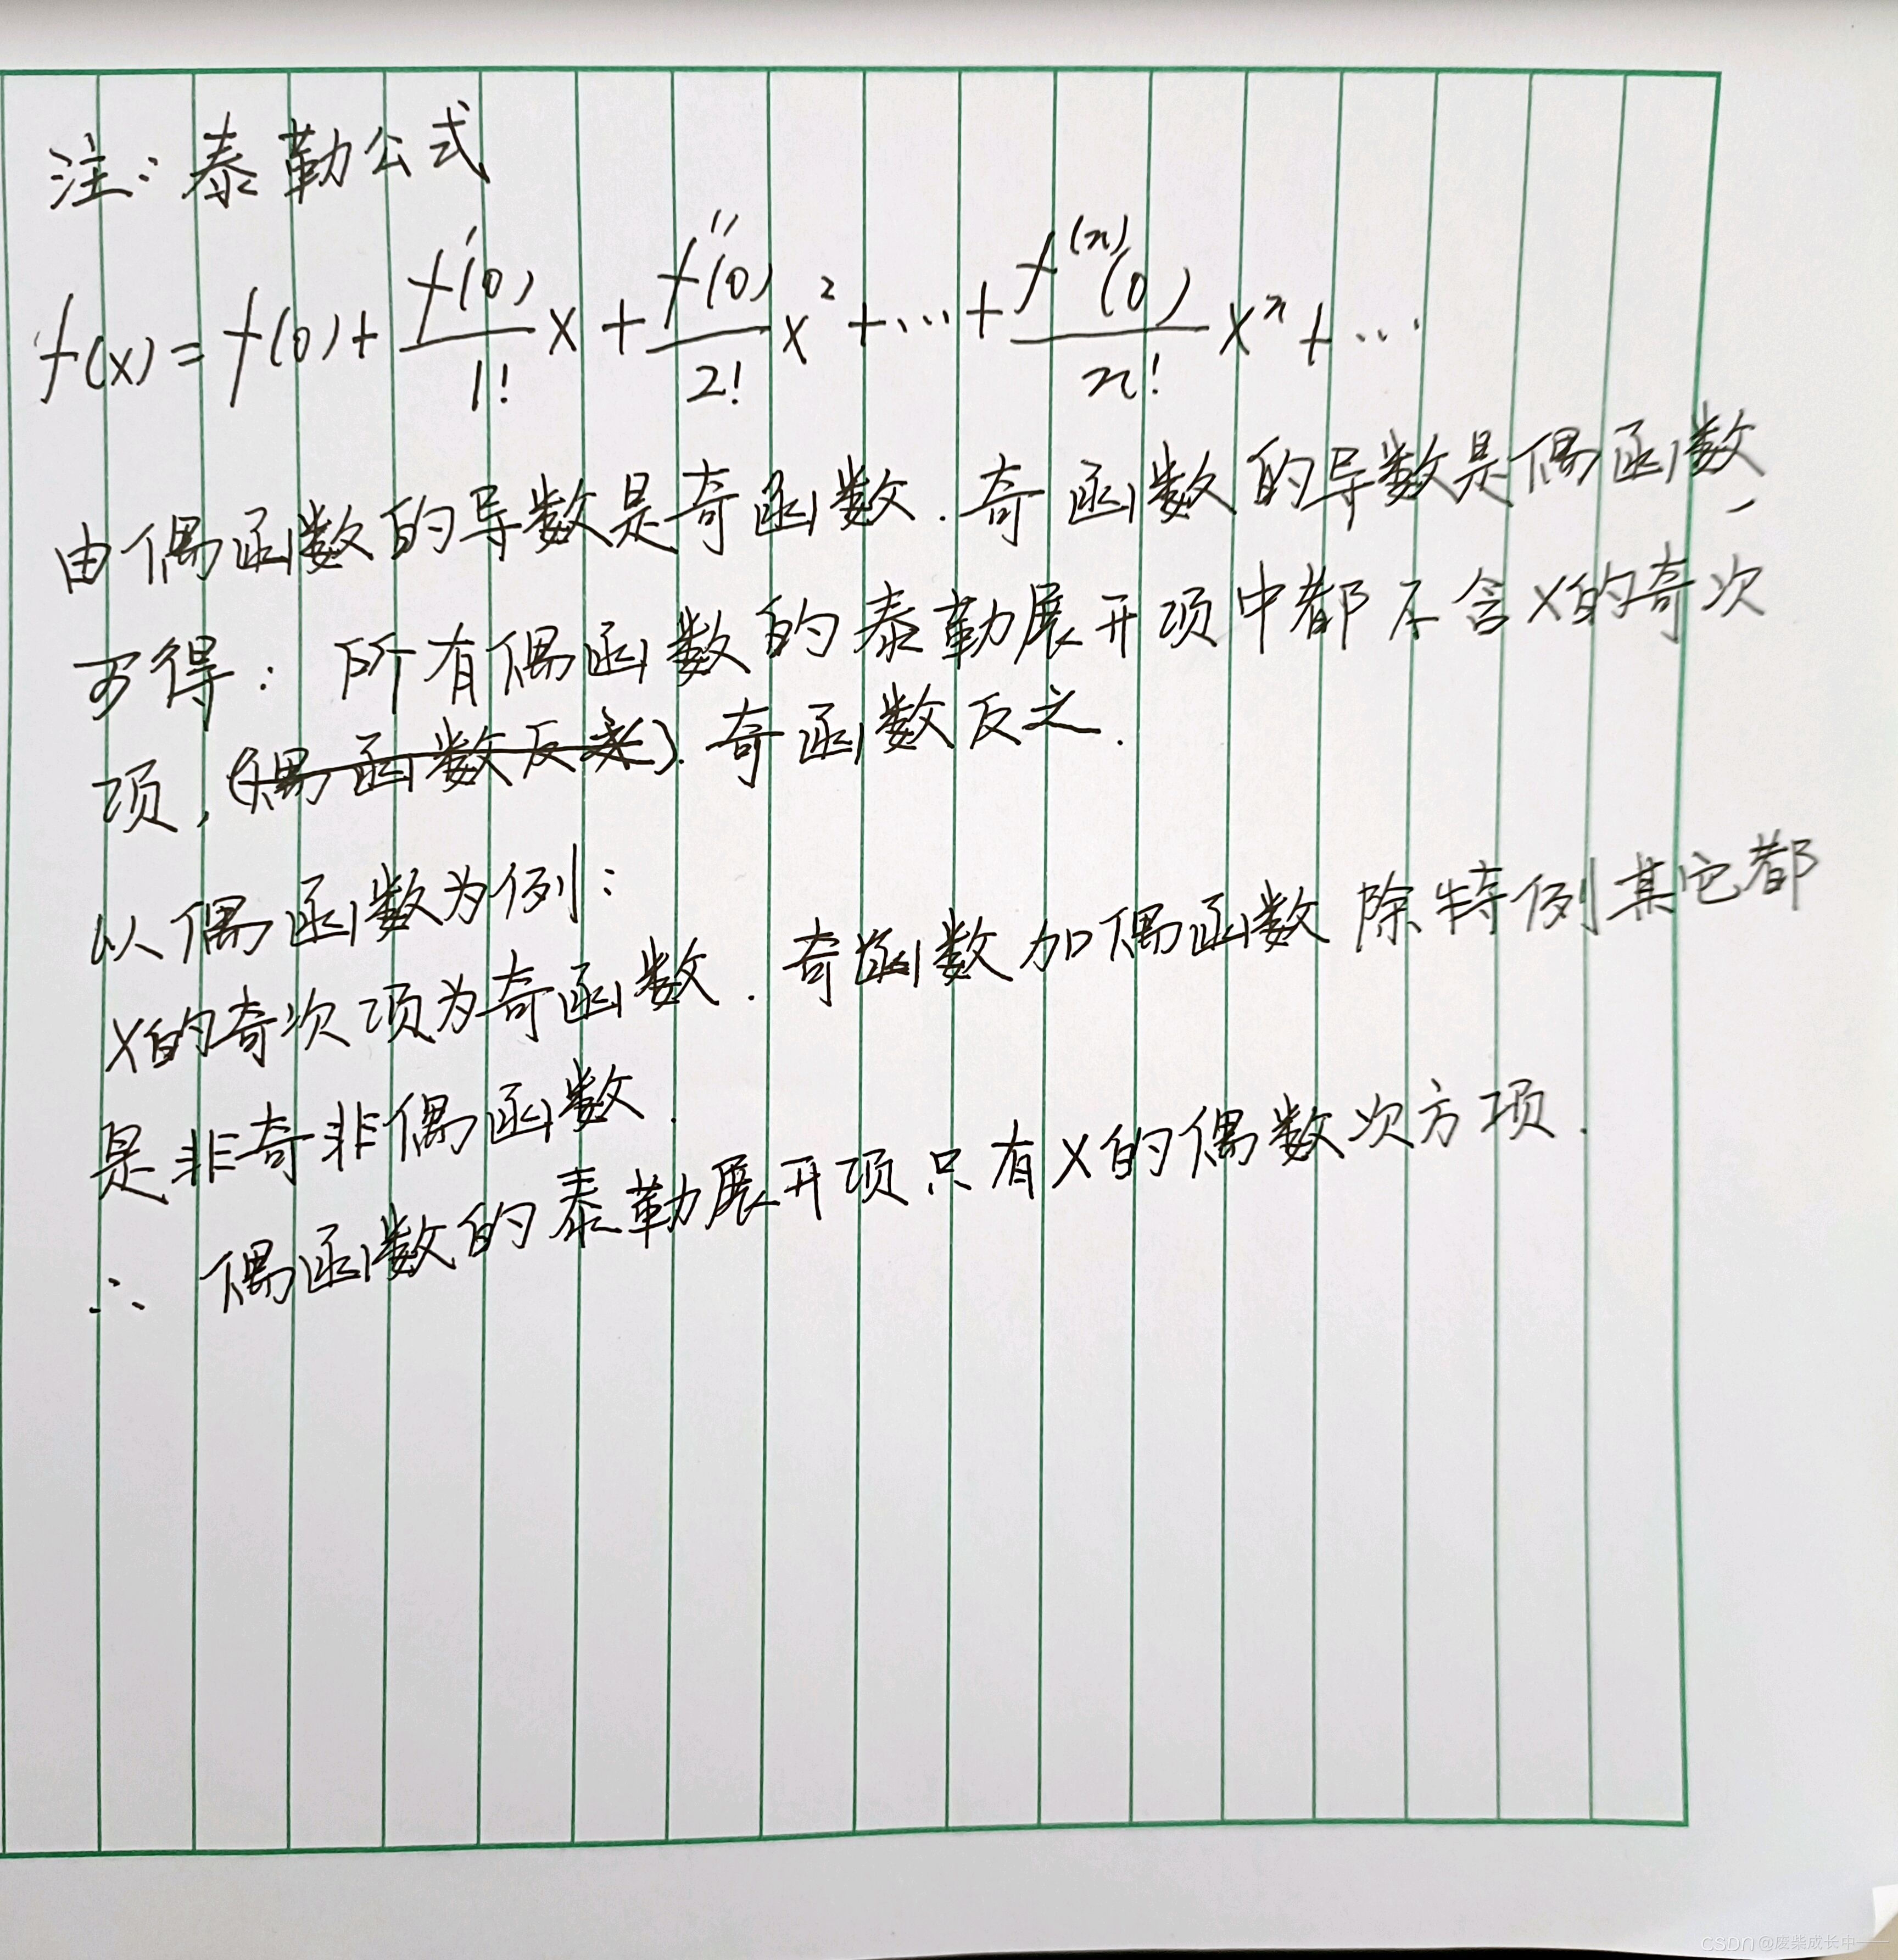 注：泰勒公式
f(x)=f(0)+\frac{f'(0)}{1!}x+\frac{f''(0)}{2!}x^2+…+\frac{f^{(n)}(0)}{n!}x^n+…
由偶函数的导数是奇函数.奇函数的导数是偶函数,
可得：所有偶函数的泰勒展开项中都不含x的奇次
项,(偶函数反之).奇函数反之.
以偶函数为例：
x的奇次项为奇函数.奇函数加偶函数除特例其它都
是非奇非偶函数.
∴ 偶函数的泰勒展开项只有x的偶数次方项.
CSDN @废柴成长中——